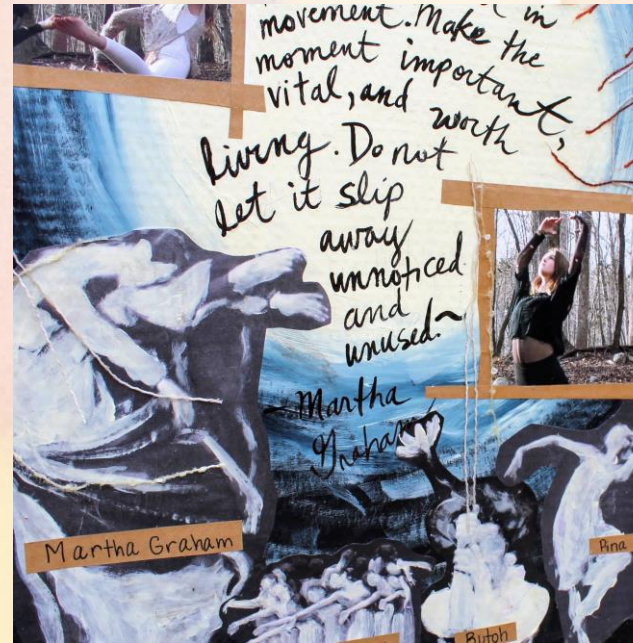 in
movement. Make the
moment important,
vital, and worth
living. Do not
let it slip
away
unnoticed
and
unused.~
~Martha
Graham
Martha Graham
Butoh
Pina